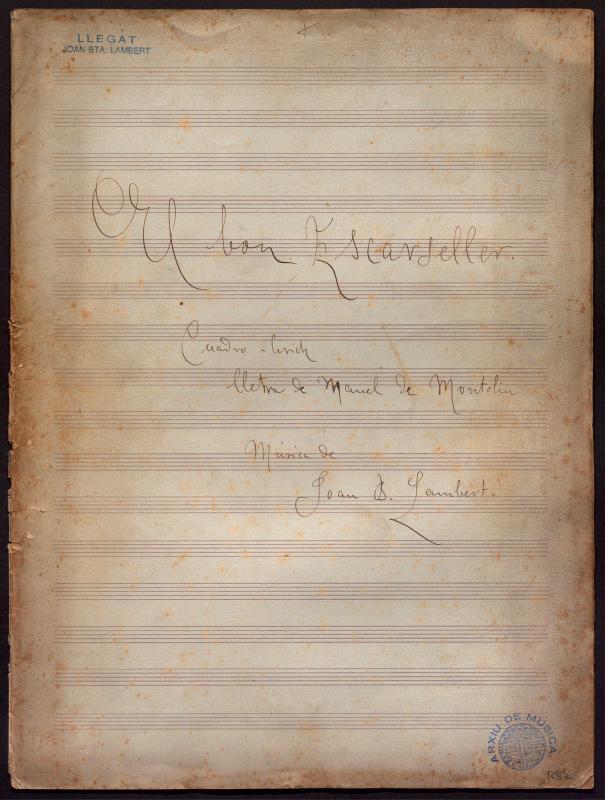 LLEGAT
JOAN BTA. LAMBERT
El bon Escarseller.
Cuadro-lirich
lletra de Manel de Montoliu
Música de
Joan B. Lambert.
ARXIU DE MÚSICA